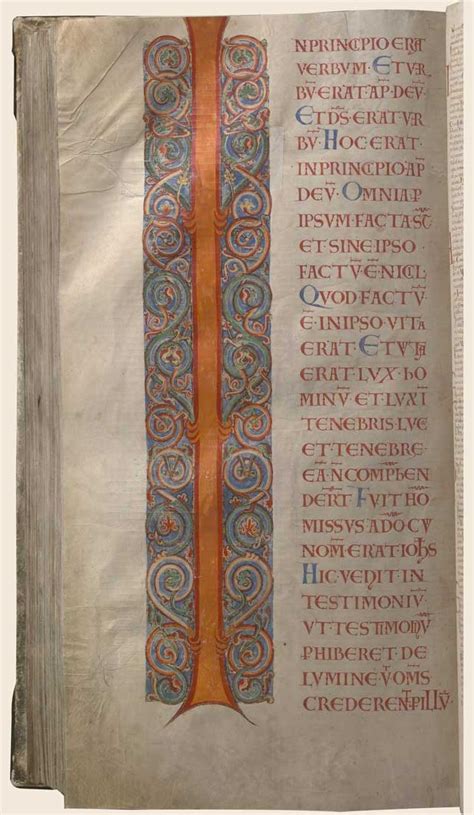 NPRINCIPIO ERAT
VERBUM · ET VER
BU ERAT · AP · DEU ·
ET DS · ERAT VER
BU · HOC ERAT ·
IN PRINCIPIO AP
DEU · OMNIA P
IPSUM FACTA ST
ET SINE IPSO
FACTU · E · NICHL
QUOD FACTU
E · IN IPSO VITA
ERAT · ET VITA
ERAT · LUX · HO
MINU · ET LUX I
TENEBRIS LUC
ET TENEBRE
EA NCOMPHEN
DERT · FUIT HO
MISSUS A DO CU
NOM ERAT IOHS
HIC · VENIT · IN
TESTIMONIU
UT TESTIMONIU
PHIBERET · DE
LUMINE · U OMS
CREDERENT P ILLU